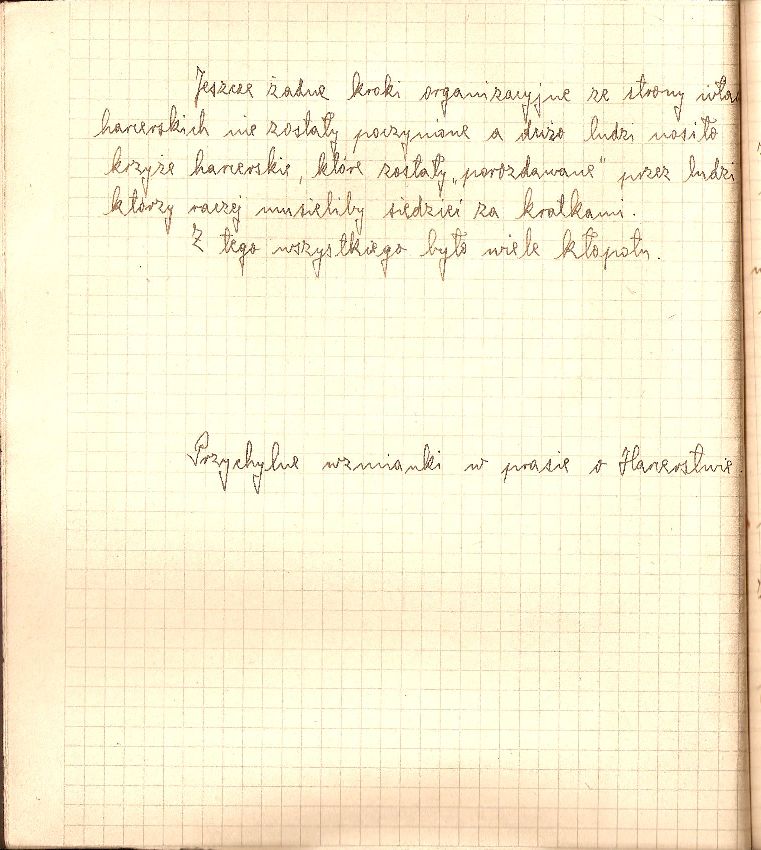 Jeszcze żadne kroki organizacyjne ze strony wład
harcerskich nie zostały poczynione a dużo ludzi nosiło
krzyże harcerskie, które zostały „porozdawane" przez ludzi
którzy raczej musieliby siedzieć za kratkami.
Z tego wszystkiego było wiele kłopotu.
Przychylne wzmianki w prasie o Harcerstwie.